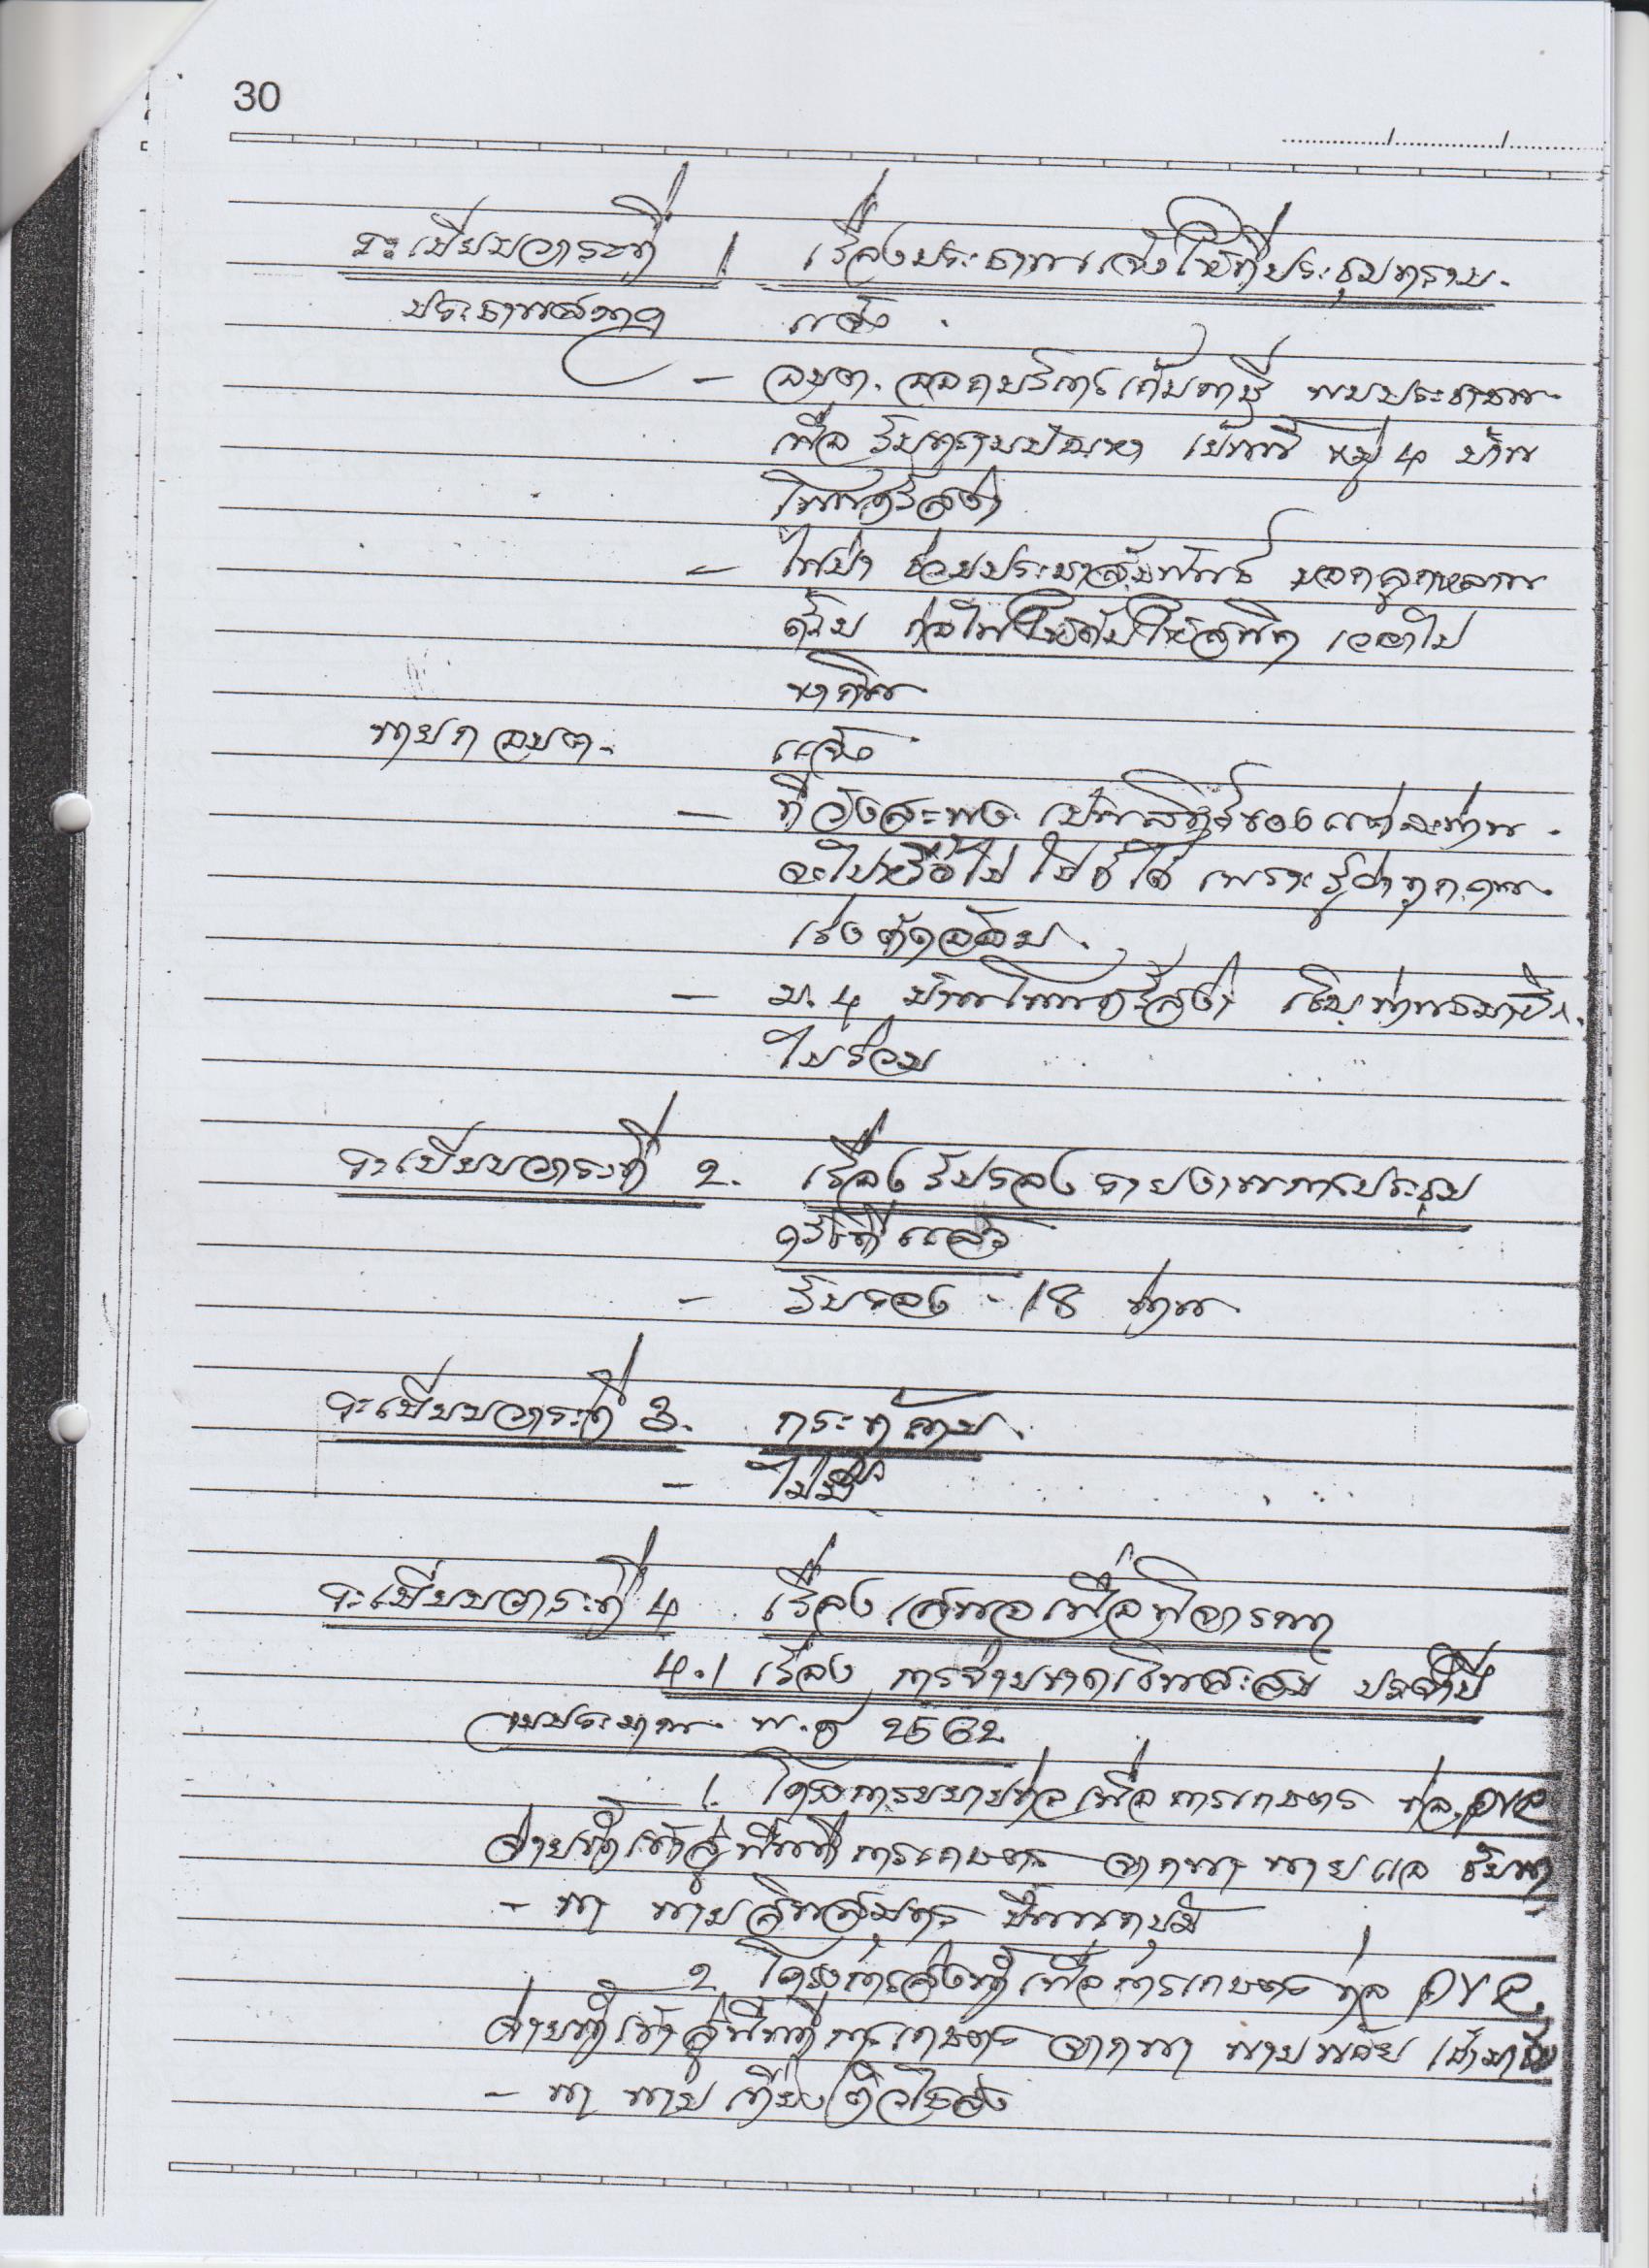 30
ระเบียบวาระที่ 1 เรื่องประธานแจ้งให้ที่ประชุมทราบ.
ประธานสภาฯ แจ้ง
- อบต. ออกบริการเก็บภาษี พบประชาชน
เพื่อรับทราบปัญหา เย็นนี้ หมู่ 4 บ้าน
โพนทรายล่าง
- ไฟป่า ช่วยประชาสัมพันธ์ บอกลูกหลาน
ด้วย ก่อไฟให้ดับให้สนิท เวลาไป
หากิน
นายก อบต. แจ้ง
- ที่วังสะพุง เป็นสิทธิ์ของแต่ละท่าน.
จะไปหรือไม่ไปก็ได้ เพราะรู้ว่าทุกคน
เร่งตัดอ้อย.
- ม. 4 เชิญท่านสมาชิก
ไปร่วม
ระเบียบวาระที่ 2. เรื่อง รับรองรายงานการประชุม
ครั้งที่แล้ว
- รับรอง - 18 ท่าน
ระเบียบวาระที่ 3. กระทู้ถาม.
- ไม่มี
ระเบียบวาระที่ 4 เรื่อง เสนอเพื่อพิจารณา
4.1 เรื่อง การจ่ายขาดเงินสะสม ประจำปี
งบประมาณ พ.ศ 2562
1. โครงการขยายท่อเพื่อการเกษตร ท่อ PVC
ส่งน้ำเข้าสู่พื้นที่การเกษตร จากนา นาย
- นา นายสินสมุทร
2 โครงการส่งน้ำเพื่อการเกษตร ท่อ PVC.
ส่งน้ำเข้าสู่พื้นที่การเกษตร จากนา นาย
- นา นาย